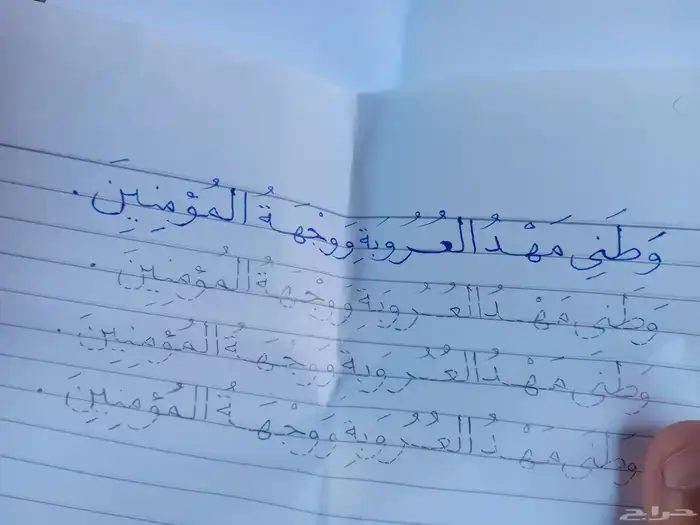 وَطَنِي مَهْدُ العُرُوبَةِ وَوِجْهَةُ المُؤْمِنِينَ .
وَطَنِي مَهْدُ العُرُوبَةِ وَوِجْهَةُ المُؤْمِنِينَ .
وَطَنِي مَهْدُ العُرُوبَةِ وَوِجْهَةُ المُؤْمِنِينَ .
وَطَنِي مَهْدُ العُرُوبَةِ وَوِجْهَةُ المُؤْمِنِينَ .
حراج